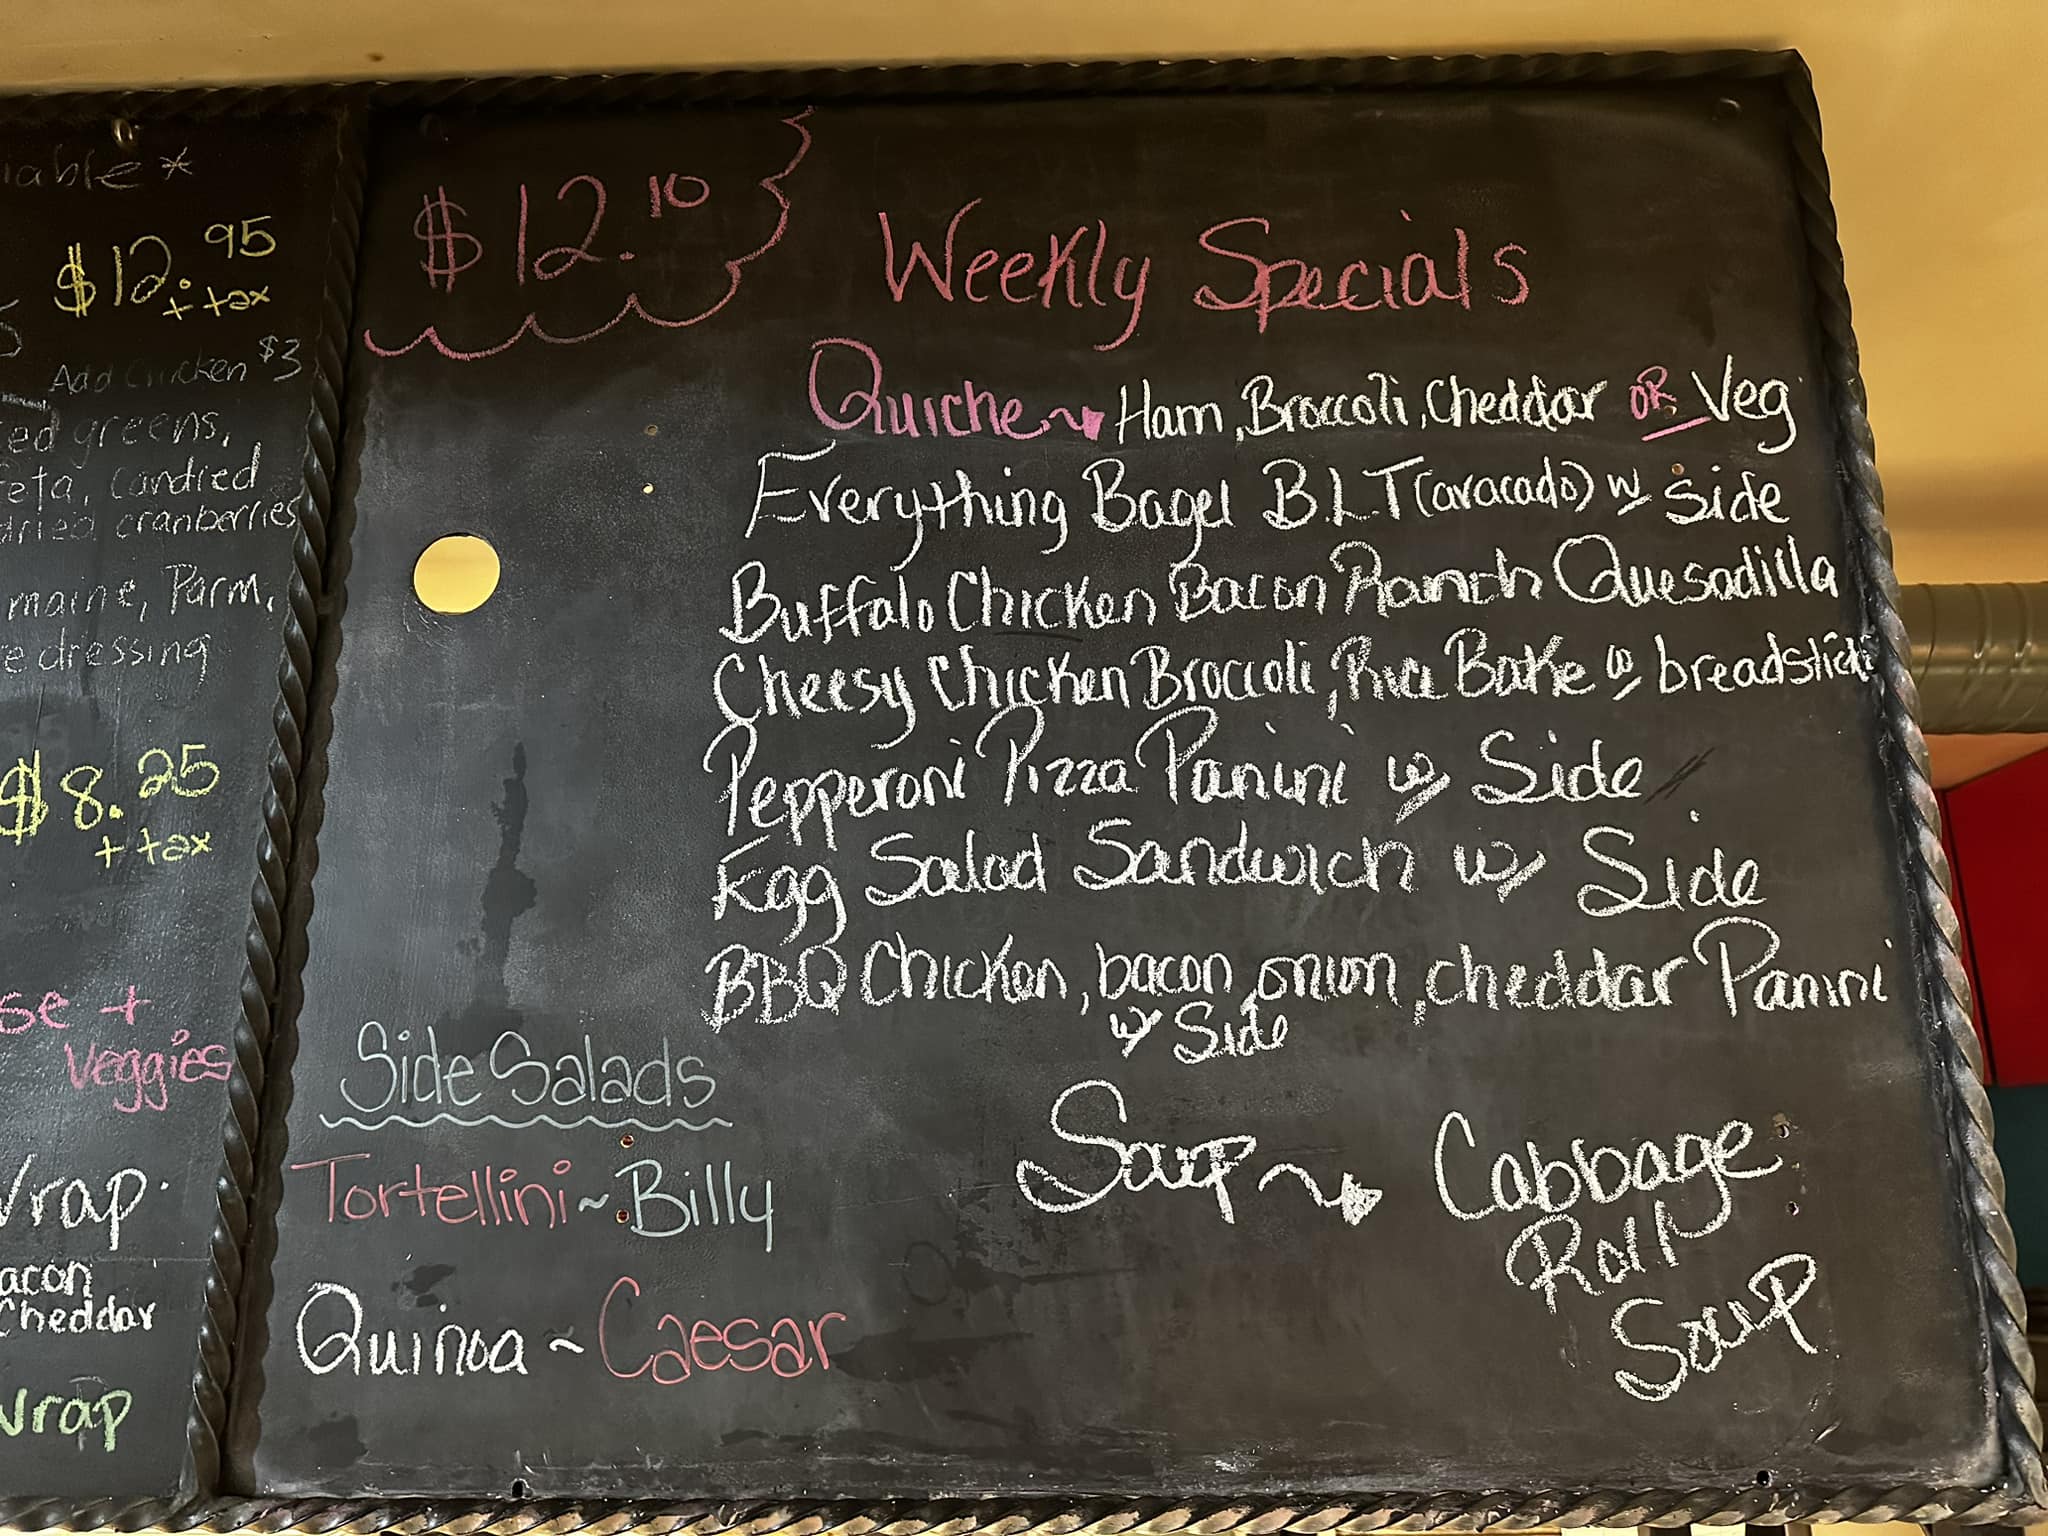 iable *
$12.95
+ tax
Add Chicken $3
ed greens,
feta, candied
dried cranberries
maine, Parm,
e dressing
$8.25
+ tax
se +
Veggies
Wrap.
acon
Cheddar
Wrap
$12.10
Weekly Specials
Quiche Ham, Broccoli, Cheddar OR Veg
Everything Bagel B.L.T (avacado) w/ side
Buffalo Chicken Bacon Ranch Quesadilla
Cheesy Chicken Broccoli, Rice Bake w/ breadsticks
Pepperoni Pizza Panini w/ Side
Egg Salad Sandwich w/ Side
BBQ Chicken, bacon, onion, cheddar Panini
w/ Side
Side Salads
Tortellini ~ Billy
Quinoa ~ Caesar
Soup
Cabbage
Roll
Soup